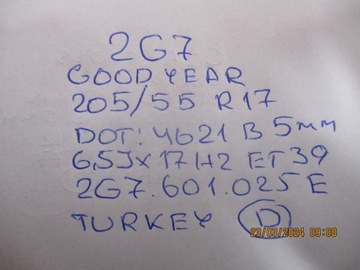 2G7
GOODYEAR
205/55 R17
DOT: 4621 B 5mm
6.5Jx17H2 ET39
2G7.601.025 E
TURKEY D
23/03/2034 09:00